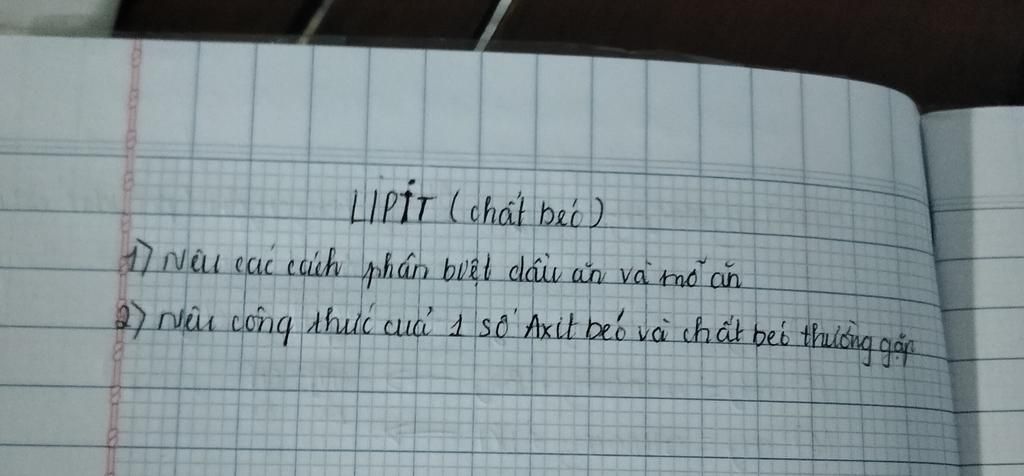 LIPIT (chất béo)
1) Nêu các cách phân biệt dầu ăn và mỡ ăn
2) Nêu công thức của 1 số Axit béo và chất béo thường gặp